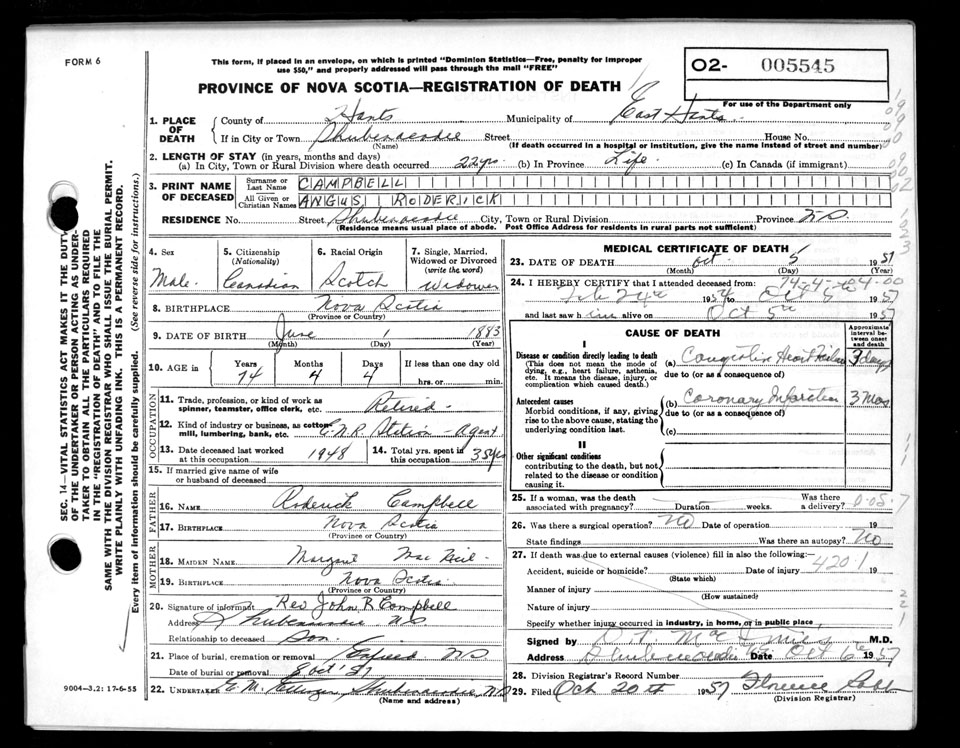 FORM 6
This form, if placed in an envelope, on which is printed "Dominion Statistics—Free, penalty for improper
use $50," and properly addressed will pass through the mail "FREE"
O2- 005545
For use of the Department only
PROVINCE OF NOVA SCOTIA—REGISTRATION OF DEATH
1. PLACE OF DEATH County of Hants Municipality of East Hants
If in City or Town Shubenacadie Street House No.
(Name) (If death occurred in a hospital or institution, give the name instead of street and number)
2. LENGTH OF STAY (in years, months and days)
(a) In City, Town or Rural Division where death occurred 22 yrs. (b) In Province Life. (c) In Canada (if immigrant)
3. PRINT NAME OF DECEASED Surname or Last Name CAMPBELL
All Given or Christian Names ANGUS RODERICK
RESIDENCE No. Street Shubenacadie City, Town or Rural Division Province N S
(Residence means usual place of abode. Post Office Address for residents in rural parts not sufficient)
4. Sex Male.
5. Citizenship (Nationality) Canadian
6. Racial Origin Scotch
7. Single, Married, Widowed or Divorced (write the word) Widower
8. BIRTHPLACE Nova Scotia
(Province or Country)
9. DATE OF BIRTH June 1883
(Month) (Day) (Year)
10. AGE in Years 74 Months Days 4 If less than one day old
hrs. or min.
OCCUPATION
11. Trade, profession, or kind of work as
spinner, teamster, office clerk, etc. Retired.
12. Kind of industry or business, as cotton
mill, lumbering, bank, etc. C.N.R. Station - Agent
13. Date deceased last worked
at this occupation 1948
14. Total yrs. spent in
this occupation 35 yrs
15. If married give name of wife
or husband of deceased
FATHER
16. NAME Roderick Campbell
17. BIRTHPLACE Nova Scotia
(Province or Country)
MOTHER
18. MAIDEN NAME Margaret Mac Neil
19. BIRTHPLACE Nova Scotia.
(Province or Country)
20. Signature of informant Rev John R Campbell
Address Shubenacadie N S
Relationship to deceased Son.
21. Place of burial, cremation or removal Enfield N S
Date of burial or removal 8 Oct '57
22. UNDERTAKER E. M. Shubenacadie N.S
(Name and address)
9004-3.2: 17-6-55
MEDICAL CERTIFICATE OF DEATH
23. DATE OF DEATH Oct. 5 1957
(Month) (Day) (Year)
24. I HEREBY CERTIFY that I attended deceased from: 74-4-404-00
1957 to Oct 5 1957
and last saw him alive on Oct 5th 1957
CAUSE OF DEATH
Approximate interval between onset and death
I
Disease or condition directly leading to death (a) Congestive Heart Failure 3 days
(This does not mean the mode of dying, e.g., heart failure, asthenia, etc. It means the disease, injury, or complication which caused death.)
due to (or as a consequence of)
Antecedent causes (b) Coronary Infarction 3 Mos
Morbid conditions, if any, giving rise to the above cause, stating the underlying condition last.
due to (or as a consequence of)
(c)
II
Other significant conditions
contributing to the death, but not related to the disease or condition causing it.
25. If a woman, was the death
associated with pregnancy? Duration weeks. Was there a delivery?
26. Was there a surgical operation? NO Date of operation 19
State findings Was there an autopsy? No
27. If death was due to external causes (violence) fill in also the following:—
Accident, suicide or homicide? Date of injury 420.1 19
(State which)
Manner of injury
(How sustained)
Nature of injury
Specify whether injury occurred in industry, in home, or in public place
Signed by M.D.
Address Shubenacadie Date Oct 6th 1957
28. Division Registrar's Record Number
29. Filed Oct 20th 1957 Florence
(Division Registrar)
SEC. 14—VITAL STATISTICS ACT MAKES IT THE DUTY
OF THE UNDERTAKER OR PERSON ACTING AS UNDER-
TAKER TO OBTAIN ALL THE PARTICULARS REQUIRED
IN THE "REGISTRATION OF DEATH" AND TO FILE THE
SAME WITH THE DIVISION REGISTRAR WHO SHALL ISSUE THE BURIAL PERMIT.
WRITE PLAINLY WITH UNFADING INK. THIS IS A PERMANENT RECORD.
Every item of information should be carefully supplied. (See reverse side for instructions.)